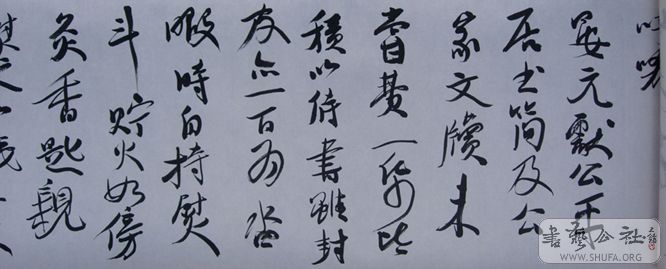 晏元獻公平
居书简及公
家文牘未
嘗費一帋皆
積以待書雖封
皮亦一百为沓
暇時自持熨
斗貯火於傍
炙香匙親
書藝公社
WWW.SHUFA.ORG